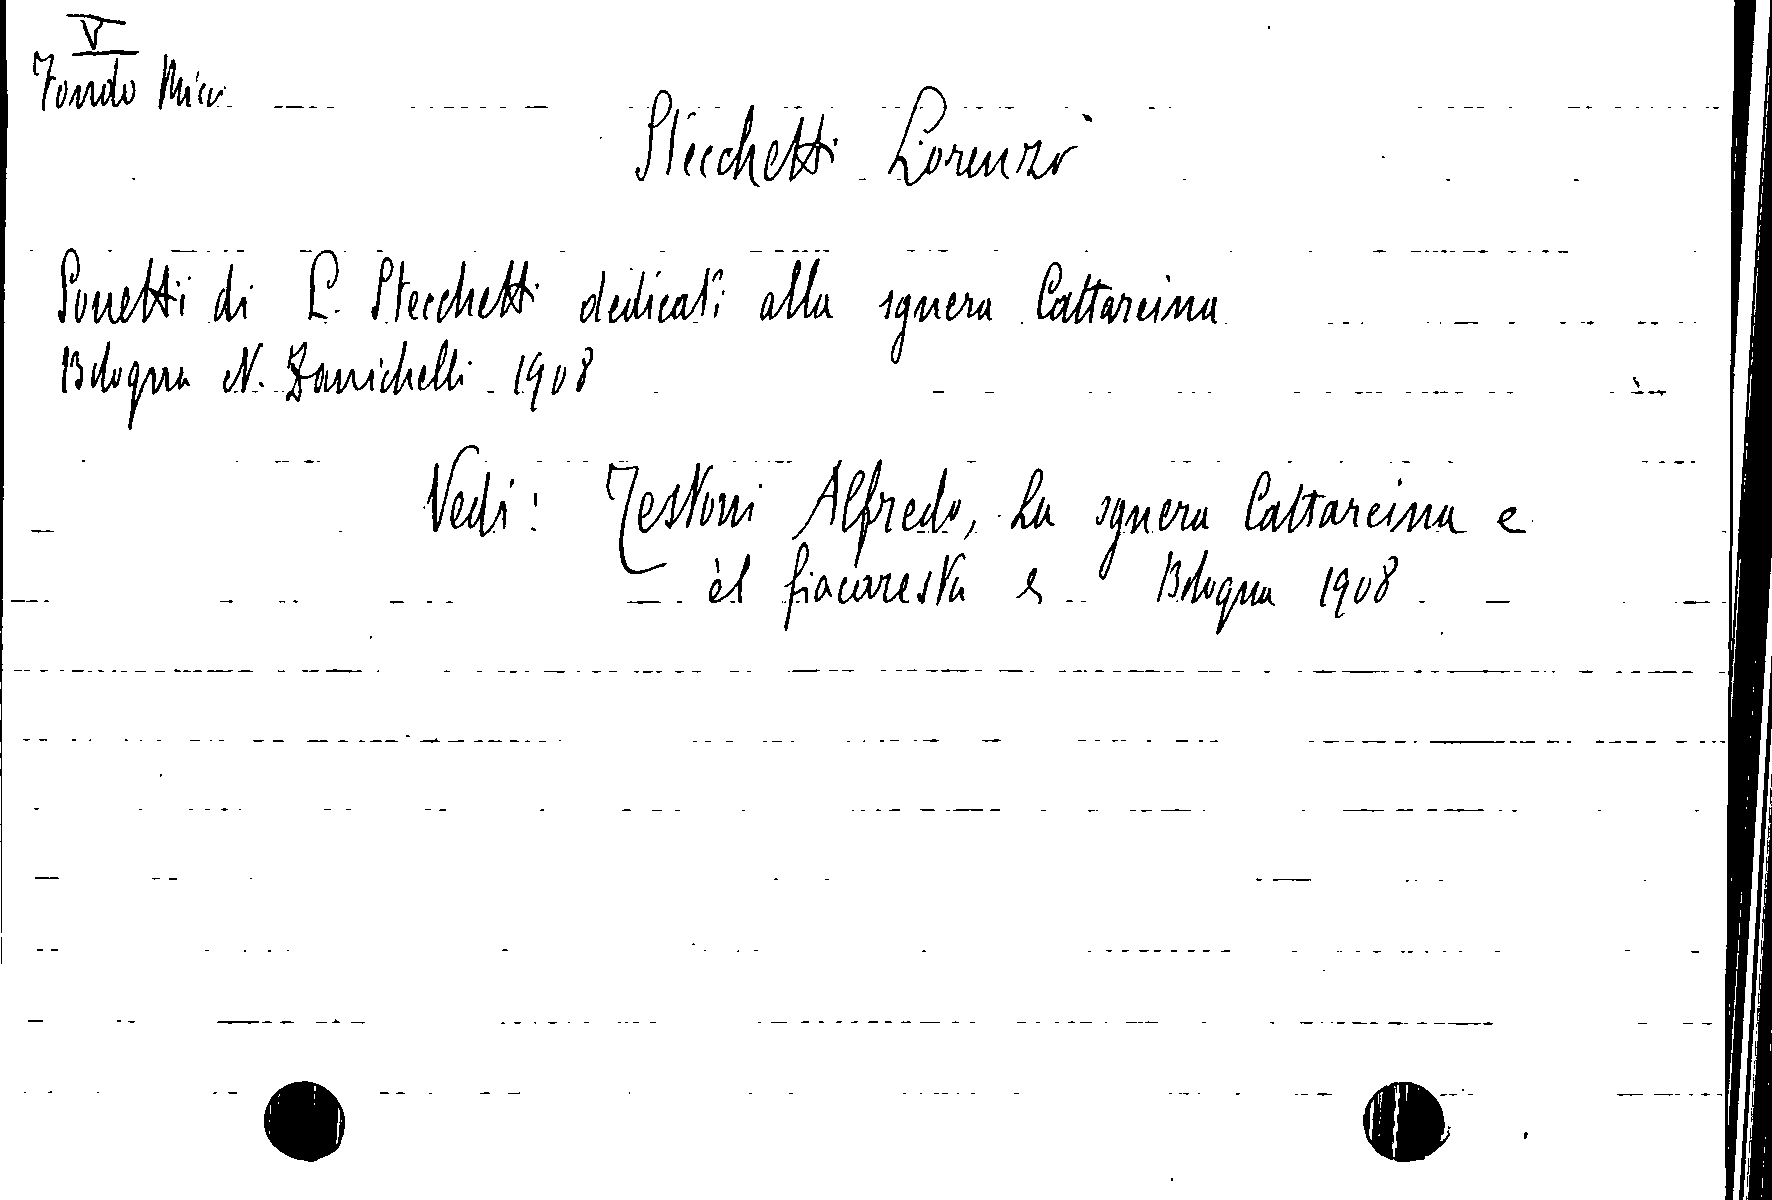 V
Fondo Micr.
Stecchetti Lorenzo
Sonetti di L. Stecchetti dedicati alla sgnera Cattareina
Bologna N. Zanichelli 1908
Vedi: Testoni Alfredo, La sgnera Cattareina e
èl fiacaresta Bologna 1908